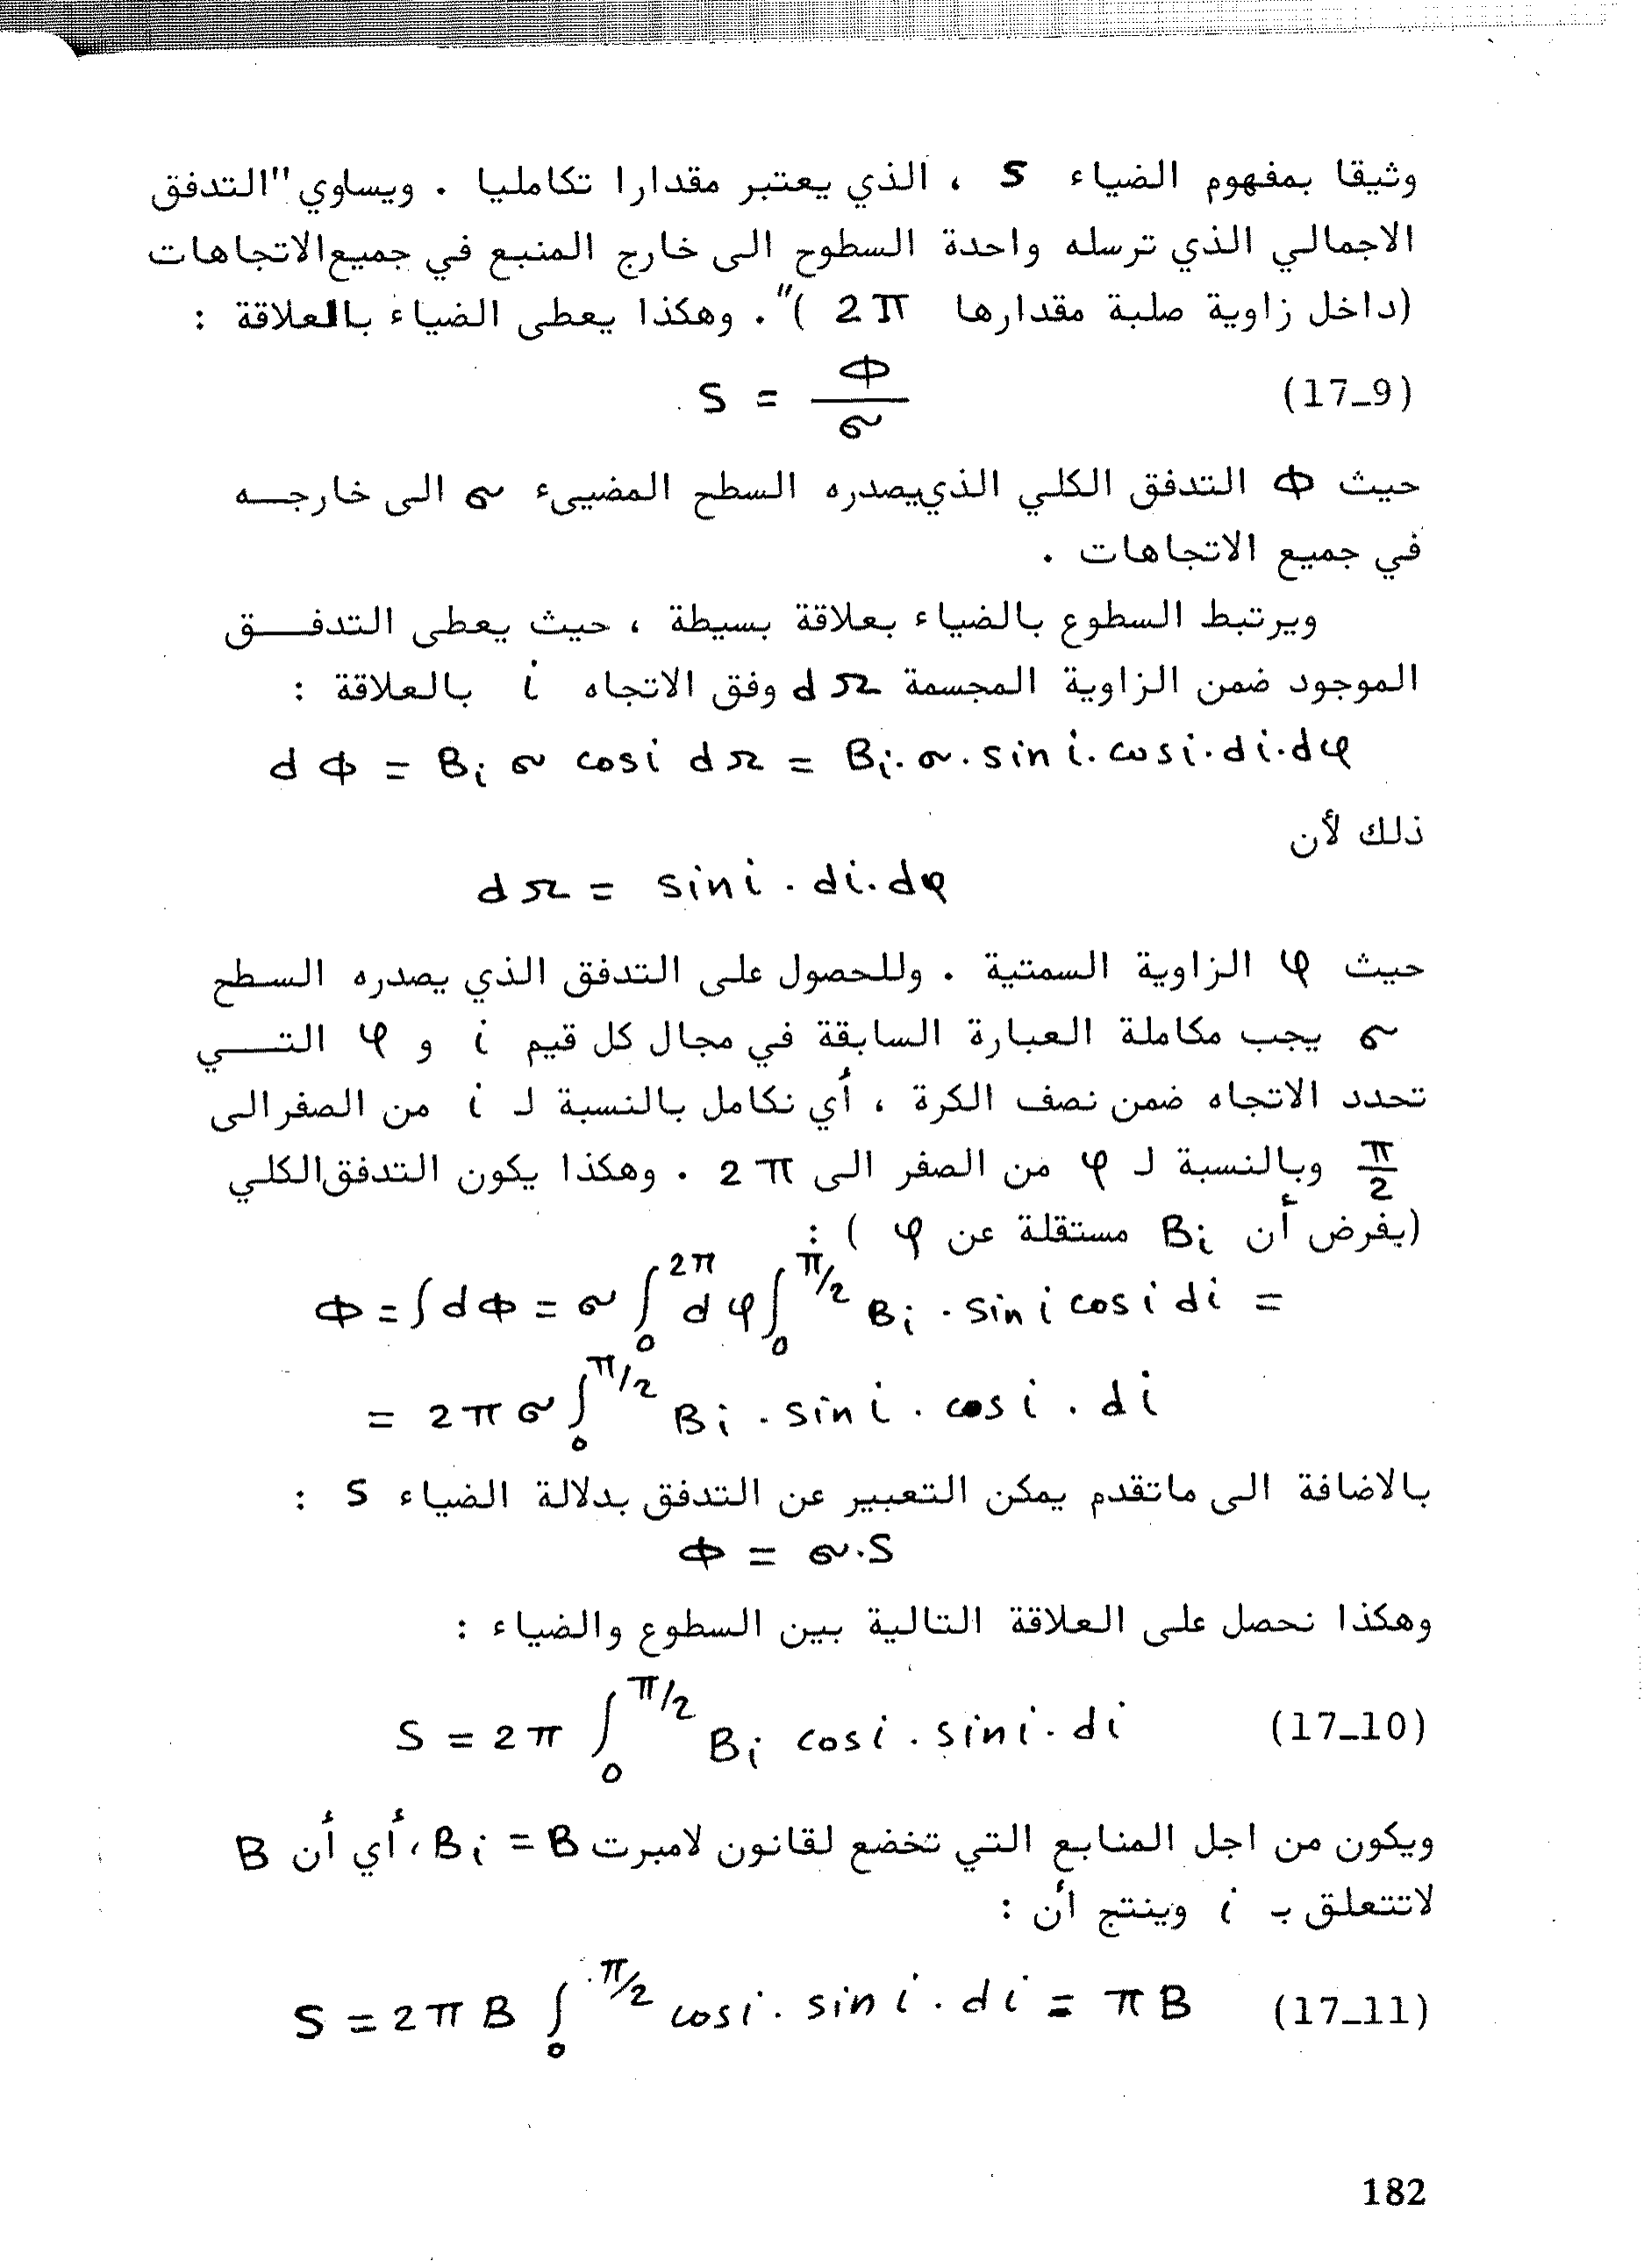 وثيقا بمفهوم الضياء S ، الذي يعتبر مقدارا تكامليا . ويساوي "التدفق
الاجمالي الذي ترسله واحدة السطوح الى خارج المنبع في جميع الاتجاهات
(داخل زاوية صلبة مقدارها 2π )" . وهكذا يعطى الضياء بالعلاقة :
S = Φ/σ (17_9)
حيث Φ التدفق الكلي الذي يصدره السطح المضيىء σ الى خارجــه
في جميع الاتجاهات .
ويرتبط السطوع بالضياء بعلاقة بسيطة ، حيث يعطى التدفــق
الموجود ضمن الزاوية المجسمة dΩ وفق الاتجاه i بالعلاقة :
dΦ = Bi σ cosi dΩ = Bi.σ.sin i.cosi.di.dφ
ذلك لأن
dΩ = sini . di.dφ
حيث φ الزاوية السمتية . وللحصول على التدفق الذي يصدره السطح
σ يجب مكاملة العبارة السابقة في مجال كل قيم i و φ التــي
تحدد الاتجاه ضمن نصف الكرة ، أي نكامل بالنسبة لـ i من الصفر الى
π/2 وبالنسبة لـ φ من الصفر الى 2π . وهكذا يكون التدفق الكلي
(بفرض أن Bi مستقلة عن φ ) :
Φ = ∫dΦ = σ ∫₀^2π dφ ∫₀^π/2 Bi . sin i cos i di =
= 2πσ ∫₀^π/2 Bi . sin i . cos i . di
بالاضافة الى ماتقدم يمكن التعبير عن التدفق بدلالة الضياء S :
Φ = σ.S
وهكذا نحصل على العلاقة التالية بين السطوع والضياء :
S = 2π ∫₀^π/2 Bi cosi . sini . di (17_10)
ويكون من اجل المنابع التي تخضع لقانون لامبرت Bi = B ، أي أن B
لاتتعلق بـ i وينتج أن :
S = 2πB ∫₀^π/2 cosi . sin i . di = πB (17_11)
182